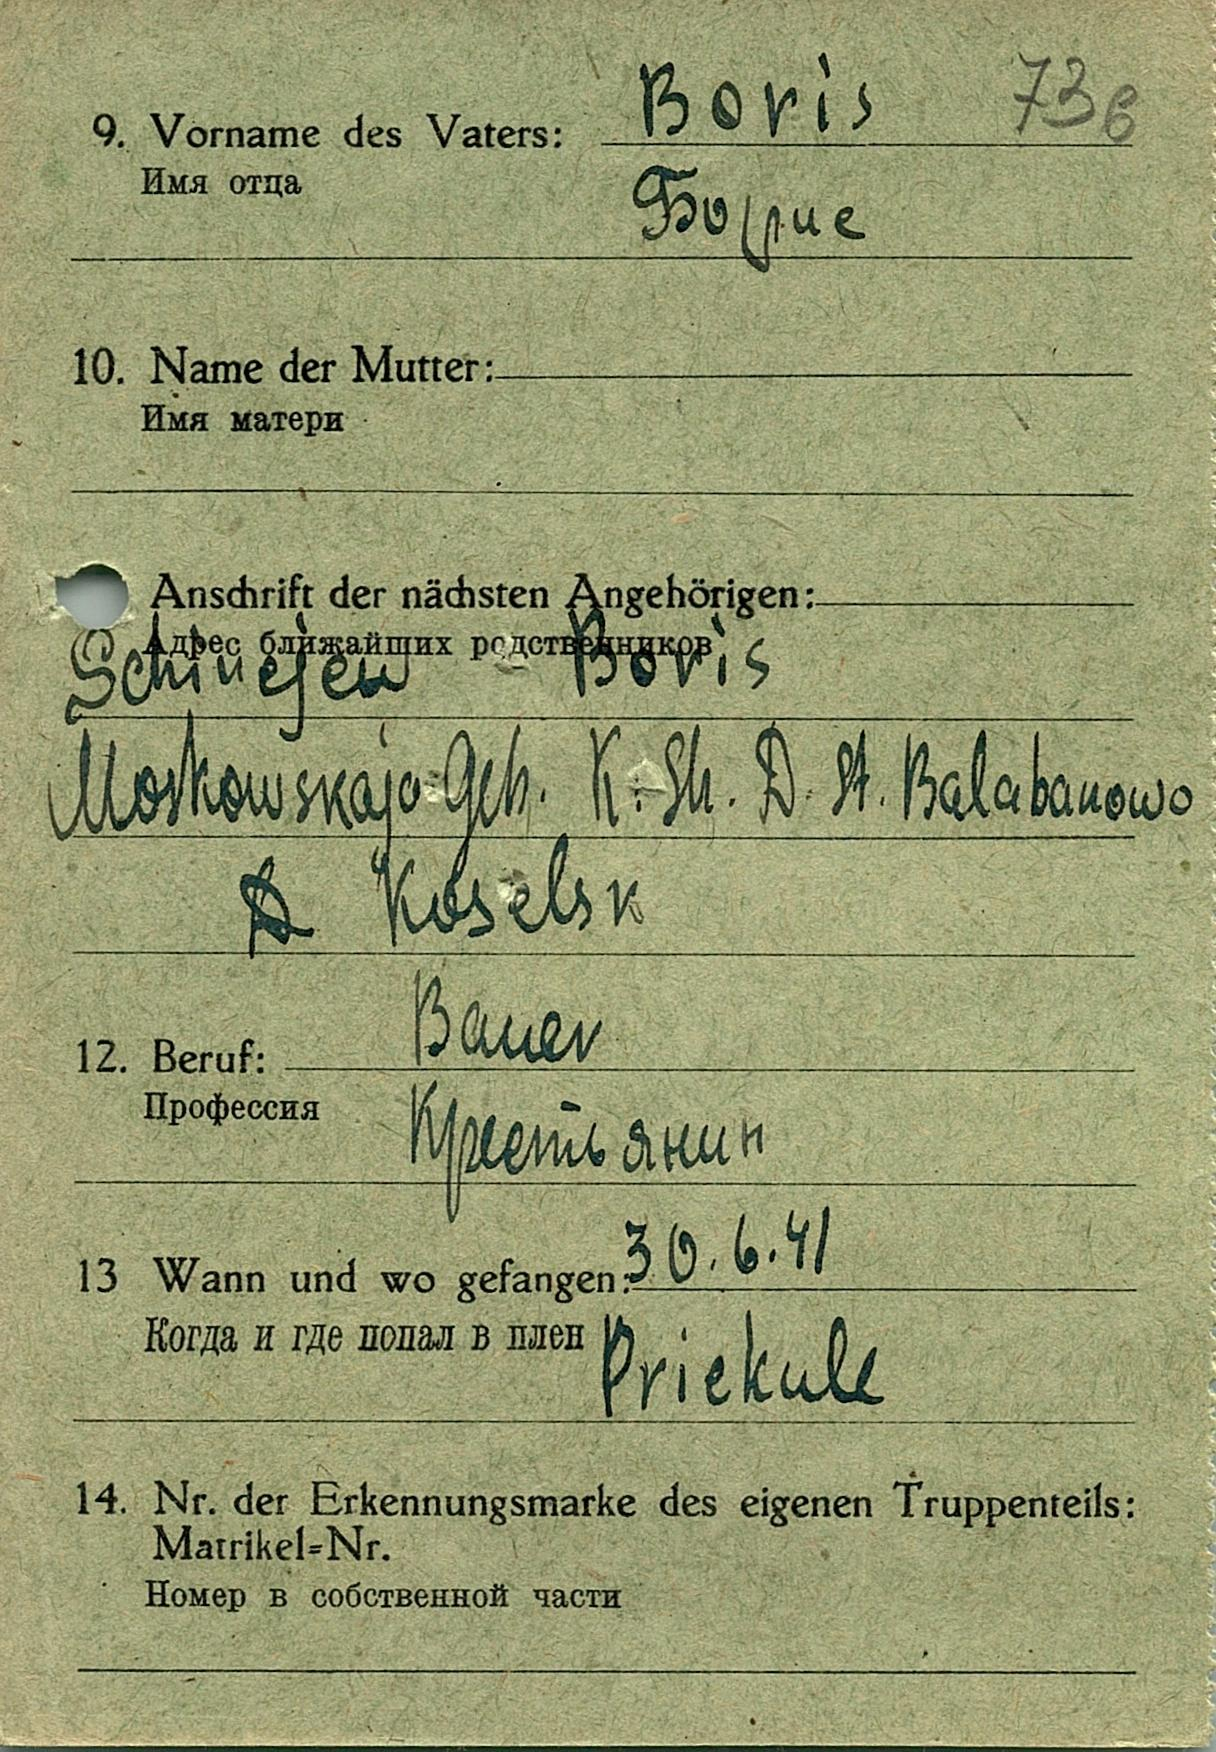 73б
9. Vorname des Vaters: Boris
Имя отца
Борис
10. Name der Mutter:
Имя матери
Anschrift der nächsten Angehörigen:
Адрес ближайших родственников
Boris
Moskowskaja Geb. K. Sh. D. St. Balabanowo
Koselsk
Bauer
12. Beruf:
Профессия
Крестьянин
13 Wann und wo gefangen: 30.6.41
Когда и где попал в плен Priekule
14. Nr. der Erkennungsmarke des eigenen Truppenteils:
Matrikel=Nr.
Номер в собственной части